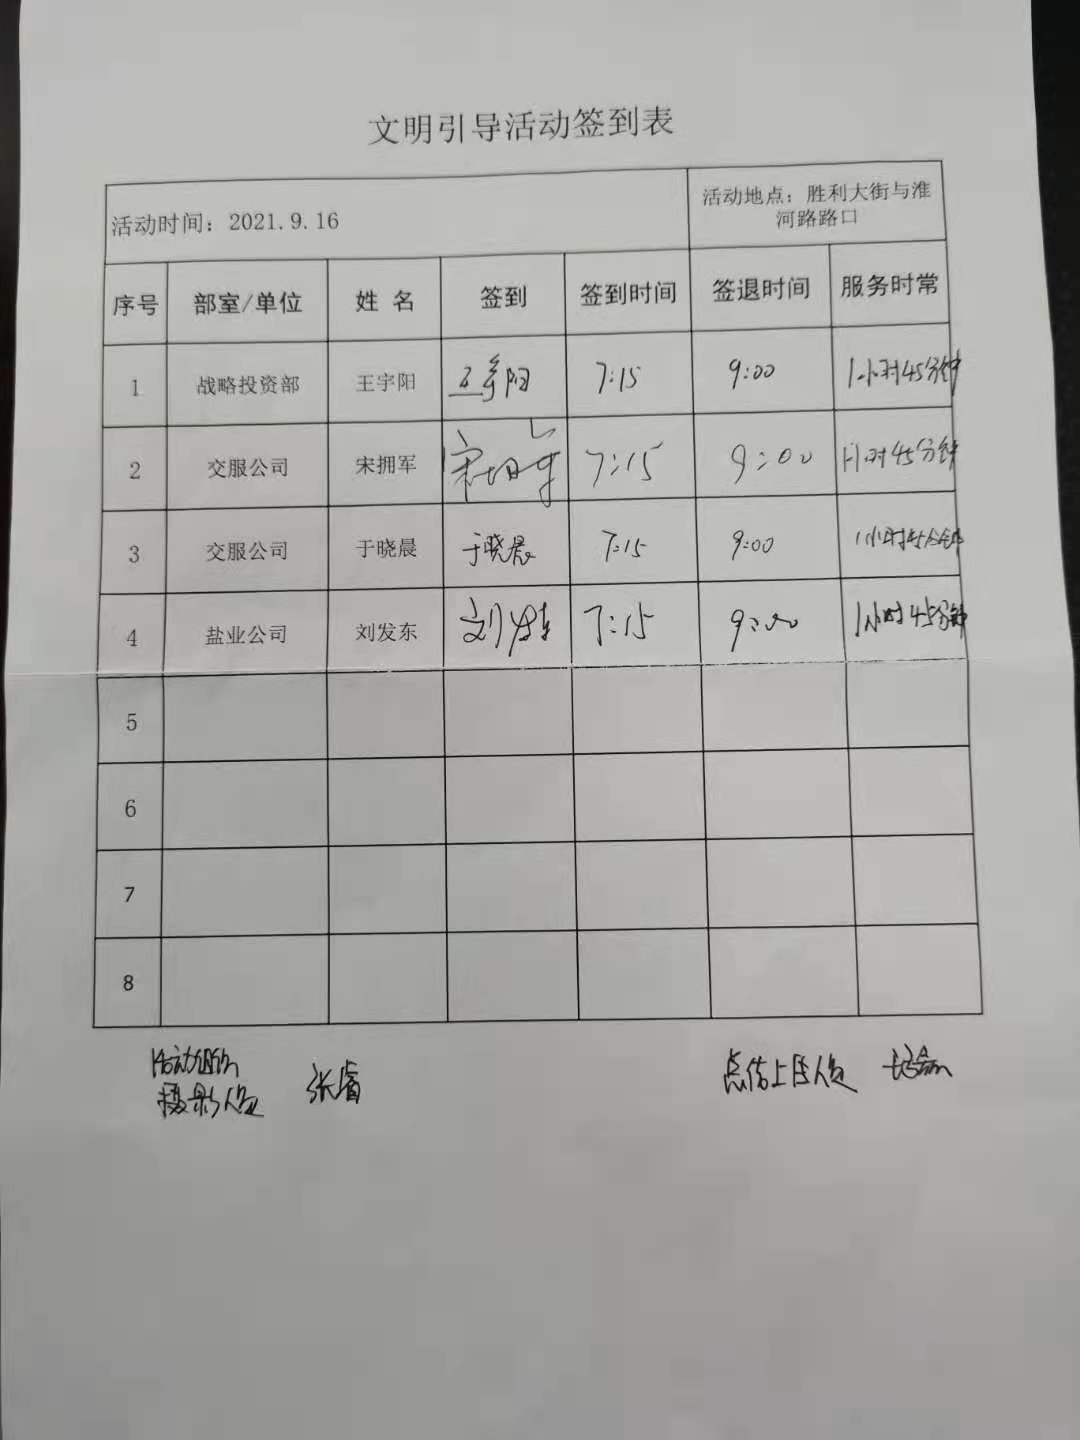 文明引导活动签到表
活动时间：2021.9.16
活动地点：胜利大街与淮
河路路口
序号 部室/单位 姓 名 签到 签到时间 签退时间 服务时常
1 战略投资部 王宇阳 王宇阳 7:15 9:00 1小时45分钟
2 交服公司 宋拥军 宋拥军 7:15 9:00 1小时45分钟
3 交服公司 于晓晨 于晓晨 7:15 9:00 1小时45分钟
4 盐业公司 刘发东 刘发东 7:15 9:00 1小时45分钟
5
6
7
8
活动组织
摄影人员 张睿
人员